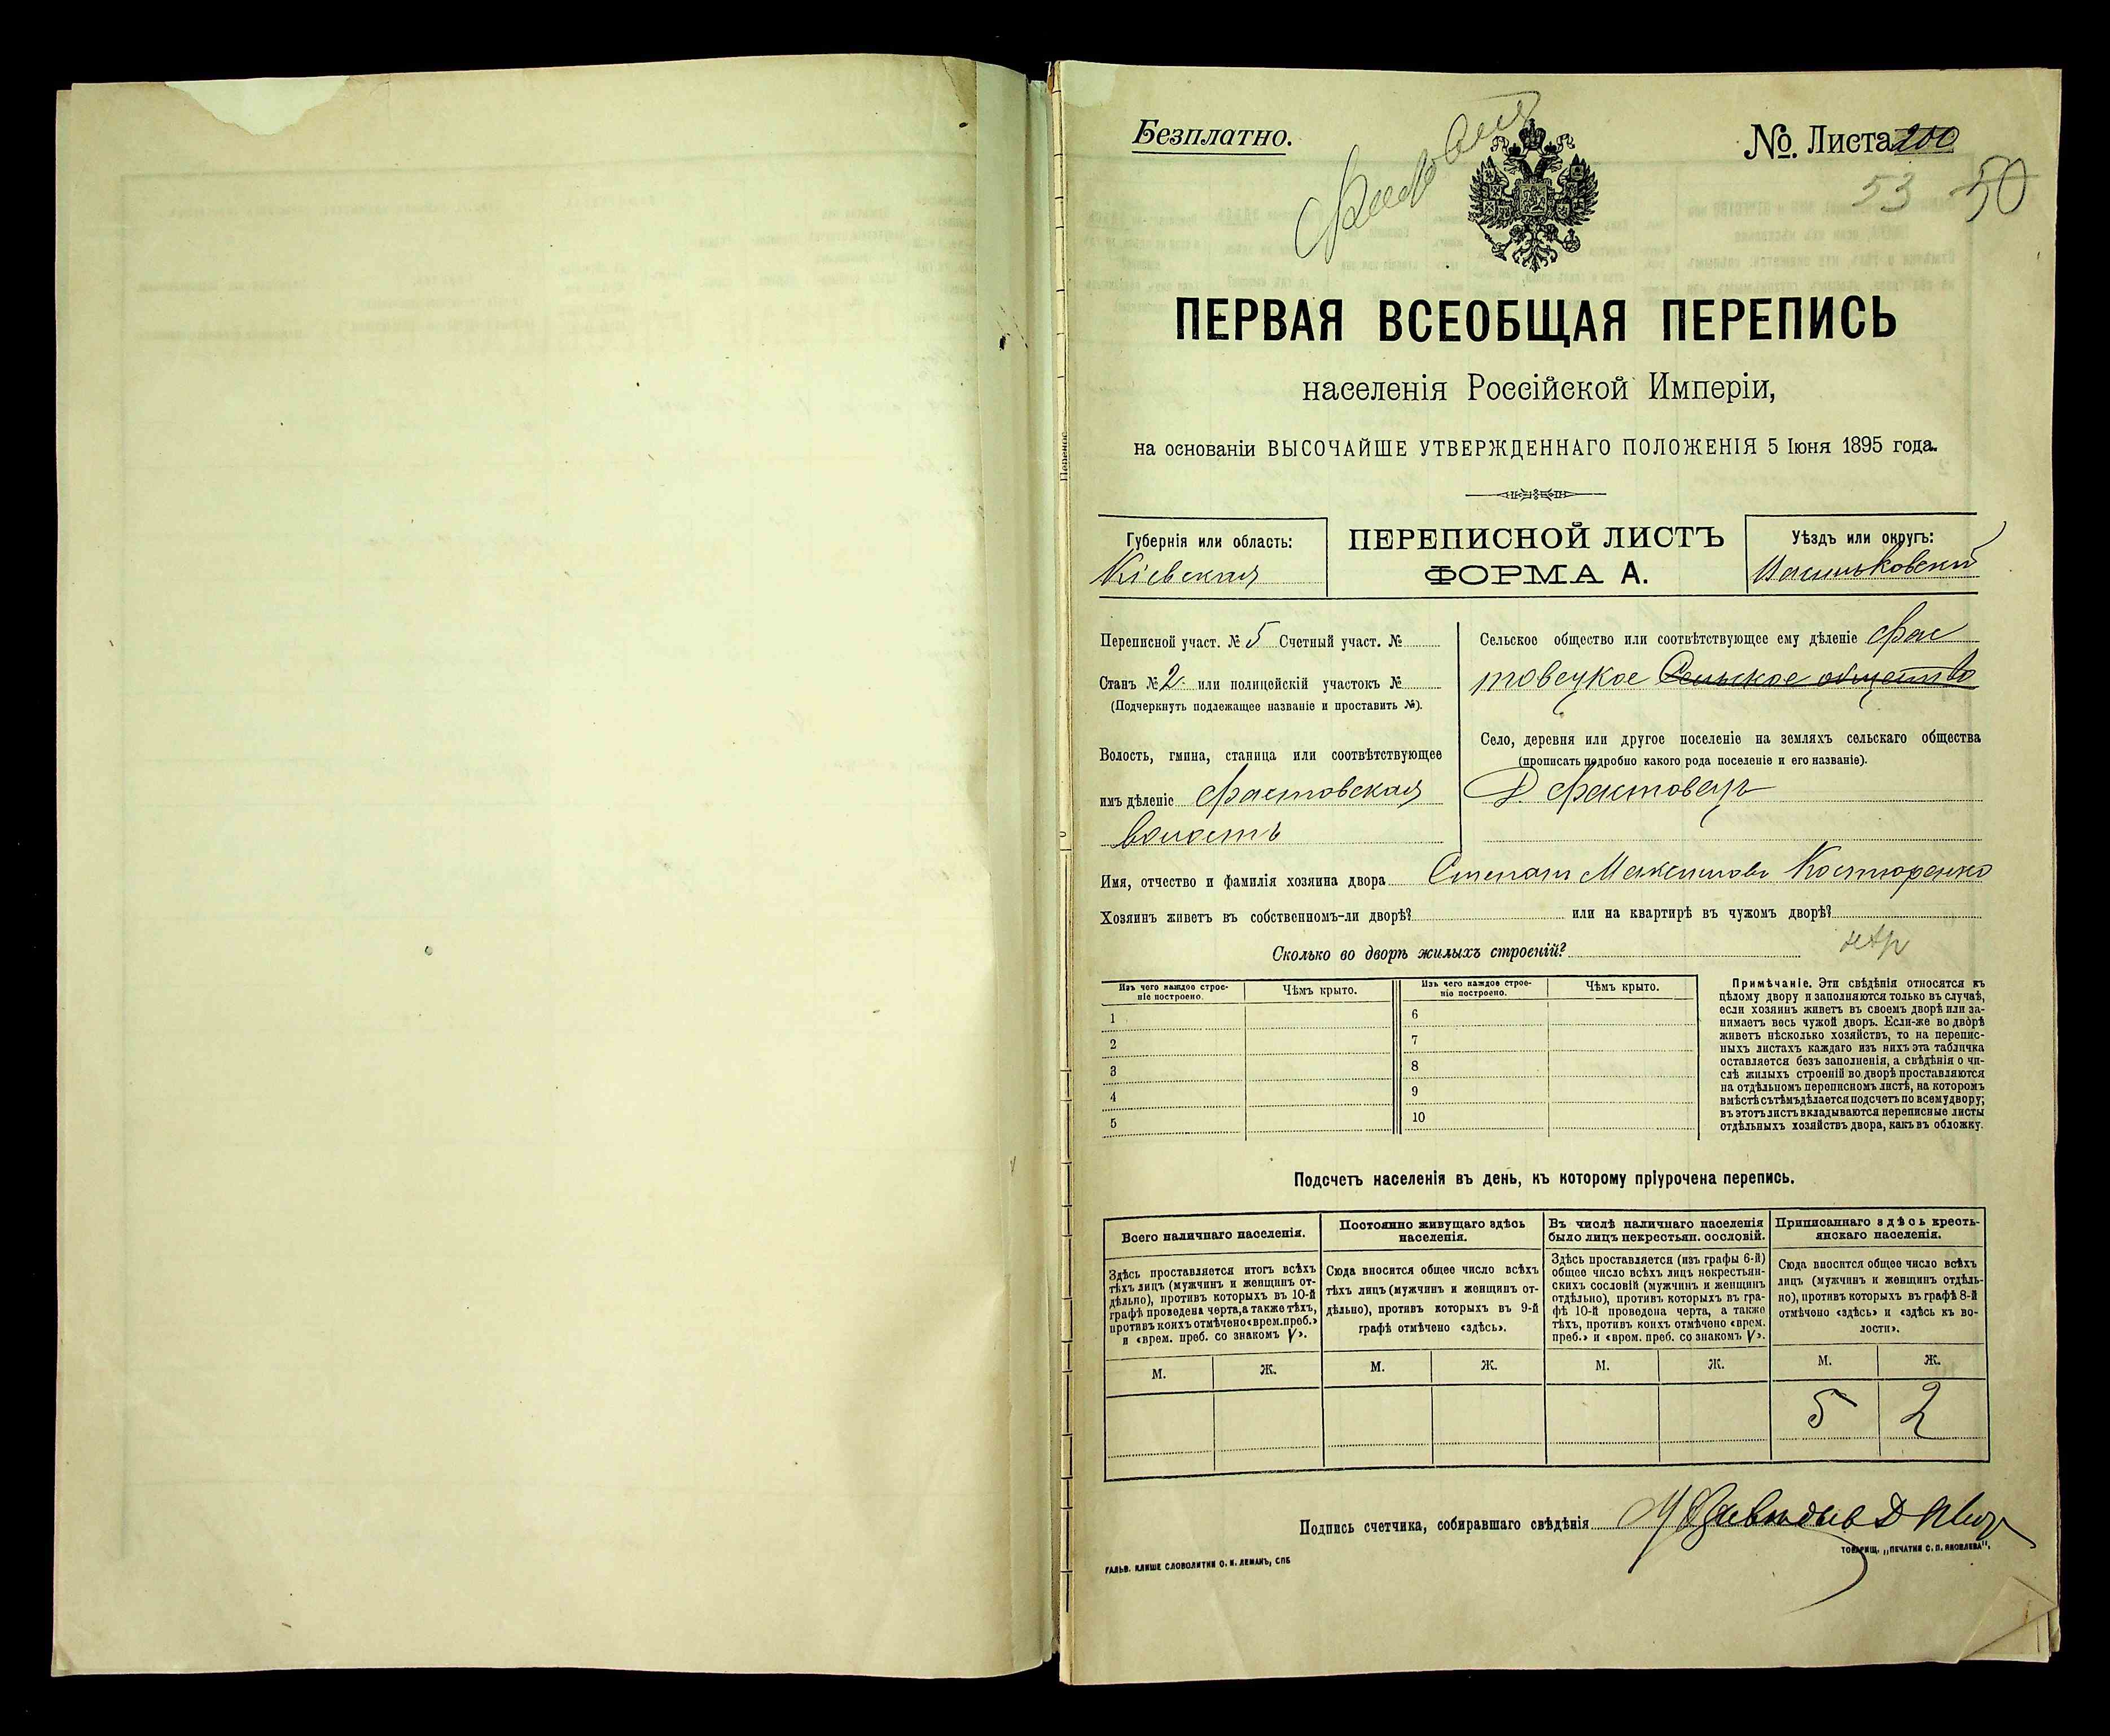 Безплатно.
№ Листа 200
53 50
ПЕРВАЯ ВСЕОБЩАЯ ПЕРЕПИСЬ
населенія Россійской Имперіи,
на основаніи ВЫСОЧАЙШЕ УТВЕРЖДЕННАГО ПОЛОЖЕНІЯ 5 Іюня 1895 года.
Губернія или область:
Кіевская
ПЕРЕПИСНОЙ ЛИСТЪ
ФОРМА А.
Уѣздъ или округъ:
Васильковскій
Переписной участ. № 5 Счетный участ. №
Станъ № 2. или полицейскій участокъ №
(Подчеркнуть подлежащее названіе и проставить №).
Волость, гмина, станица или соотвѣтствующее
имъ дѣленіе Фастовская
волость
Сельское общество или соотвѣтствующее ему дѣленіе Фас
товецкое Сельское общество
Село, деревня или другое поселеніе на земляхъ сельскаго общества
(прописать подробно какого рода поселеніе и его названіе).
Д. Фастовецъ
Имя, отчество и фамилія хозяина двора Степанъ Максимовъ Костюренко
Хозяинъ живетъ въ собственномъ-ли дворѣ? или на квартирѣ въ чужомъ дворѣ?
Сколько во дворѣ жилыхъ строеній?
Изъ чего каждое строе-
ніе построено.
Чѣмъ крыто.
Изъ чего каждое строе-
ніе построено.
Чѣмъ крыто.
1 6
2 7
3 8
4 9
5 10
Примѣчаніе. Эти свѣдѣнія относятся къ
цѣлому двору и заполняются только въ случаѣ,
если хозяинъ живетъ въ своемъ дворѣ или за-
нимаетъ весь чужой дворъ. Если-же во дворѣ
живетъ нѣсколько хозяйствъ, то на перепис-
ныхъ листахъ каждаго изъ нихъ эта табличка
оставляется безъ заполненія, а свѣдѣнія о чи-
слѣ жилыхъ строеній во дворѣ проставляются
на отдѣльномъ переписномъ листѣ, на которомъ
вмѣстѣ съ тѣмъ дѣлается подсчетъ по всему двору;
въ этотъ листъ вкладываются переписные листы
отдѣльныхъ хозяйствъ двора, какъ въ обложку.
Подсчетъ населенія въ день, къ которому пріурочена перепись.
Всего наличнаго населенія.
Здѣсь проставляется итогъ всѣхъ
тѣхъ лицъ (мужчинъ и женщинъ от-
дѣльно), противъ которыхъ въ 10-й
графѣ проведена черта, а также тѣхъ,
противъ коихъ отмѣчено «врем. преб.»
и «врем. преб. со знакомъ V».
М. Ж.
Постоянно живущаго здѣсь
населенія.
Сюда вносится общее число всѣхъ
тѣхъ лицъ (мужчинъ и женщинъ от-
дѣльно), противъ которыхъ въ 9-й
графѣ отмѣчено «здѣсь».
М. Ж.
Въ числѣ наличнаго населенія
было лицъ некрестьян. сословій.
Здѣсь проставляется (изъ графы 6-й)
общее число всѣхъ лицъ некрестьян-
скихъ сословій (мужчинъ и женщинъ
отдѣльно), противъ которыхъ въ гра-
фѣ 10-й проведена черта, а также
тѣхъ, противъ коихъ отмѣчено «врем.
преб.» и «врем. преб. со знакомъ V».
М. Ж.
Приписаннаго здѣсь кресть-
янскаго населенія.
Сюда вносится общее число всѣхъ
лицъ (мужчинъ и женщинъ отдѣль-
но), противъ которыхъ въ графѣ 8-й
отмѣчено «здѣсь» и «здѣсь къ во-
лости».
М. Ж.
5 2
Подпись счетчика, собиравшаго свѣдѣнія
ГАЛЬВ. КЛИШЕ СЛОВОЛИТНИ О. И. ЛЕМАНЪ, СПБ
ТОВАРИЩ. „ПЕЧАТНИ С. П. ЯКОВЛЕВА“.